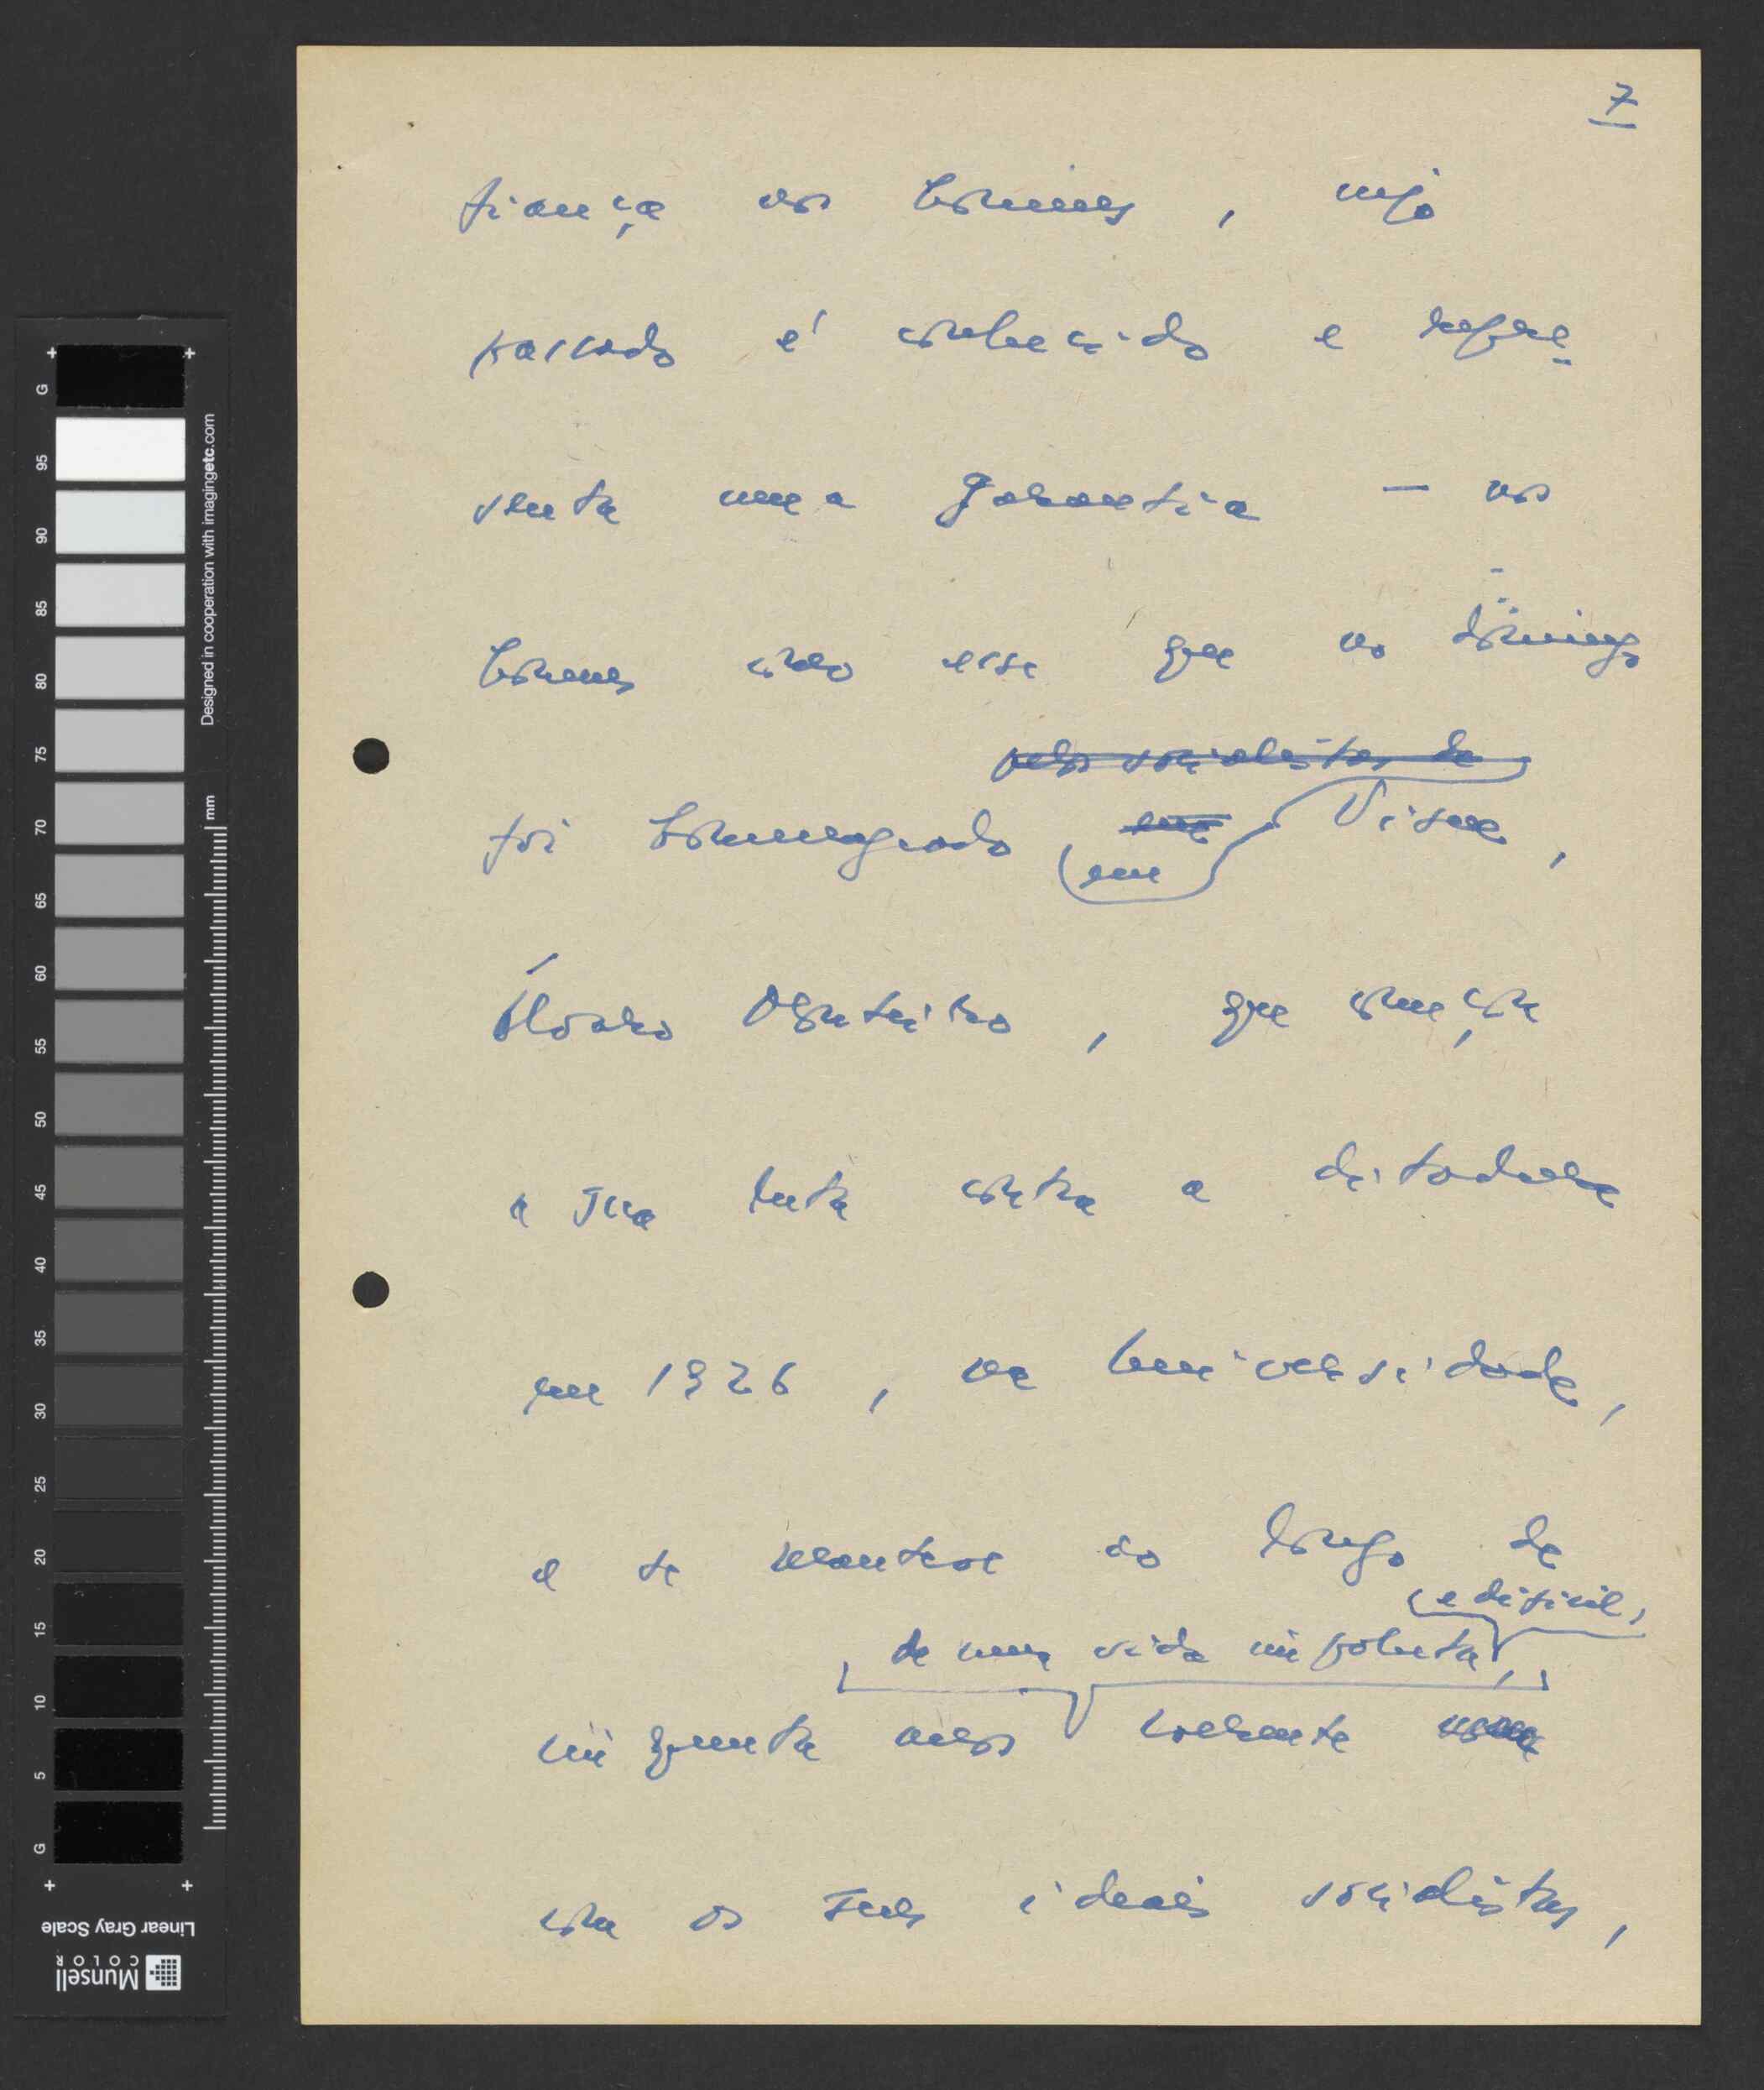 7
fiança nos homens, cujo
passado é conhecido e repre-
senta uma garantia — nos
homens como esse que no domingo
pelos socialistas de
foi homenageado em Viseu,
Álvaro Monteiro, que começou
a sua luta contra a ditadura
em 1926, na Universidade,
e se manteve ao longo de
e difícil,
de uma vida impoluta,
cinquenta anos coerente
com os seus ideais socialistas,
G
95
90
85
80
75
70
65
60
55
50
45
40
35
30
25
20
15
10
5
G
Designed in cooperation with imagingetc.com
mm
Linear Gray Scale
Munsell
COLOR